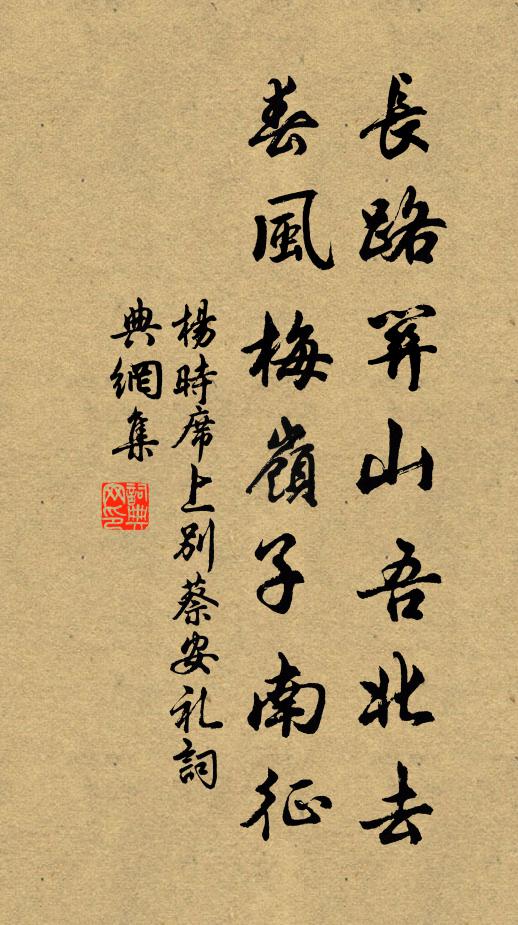 長路関山吾北去
春風梅嶺子南征
楊時席上別蔡安礼詞
典網集
詞典
网印